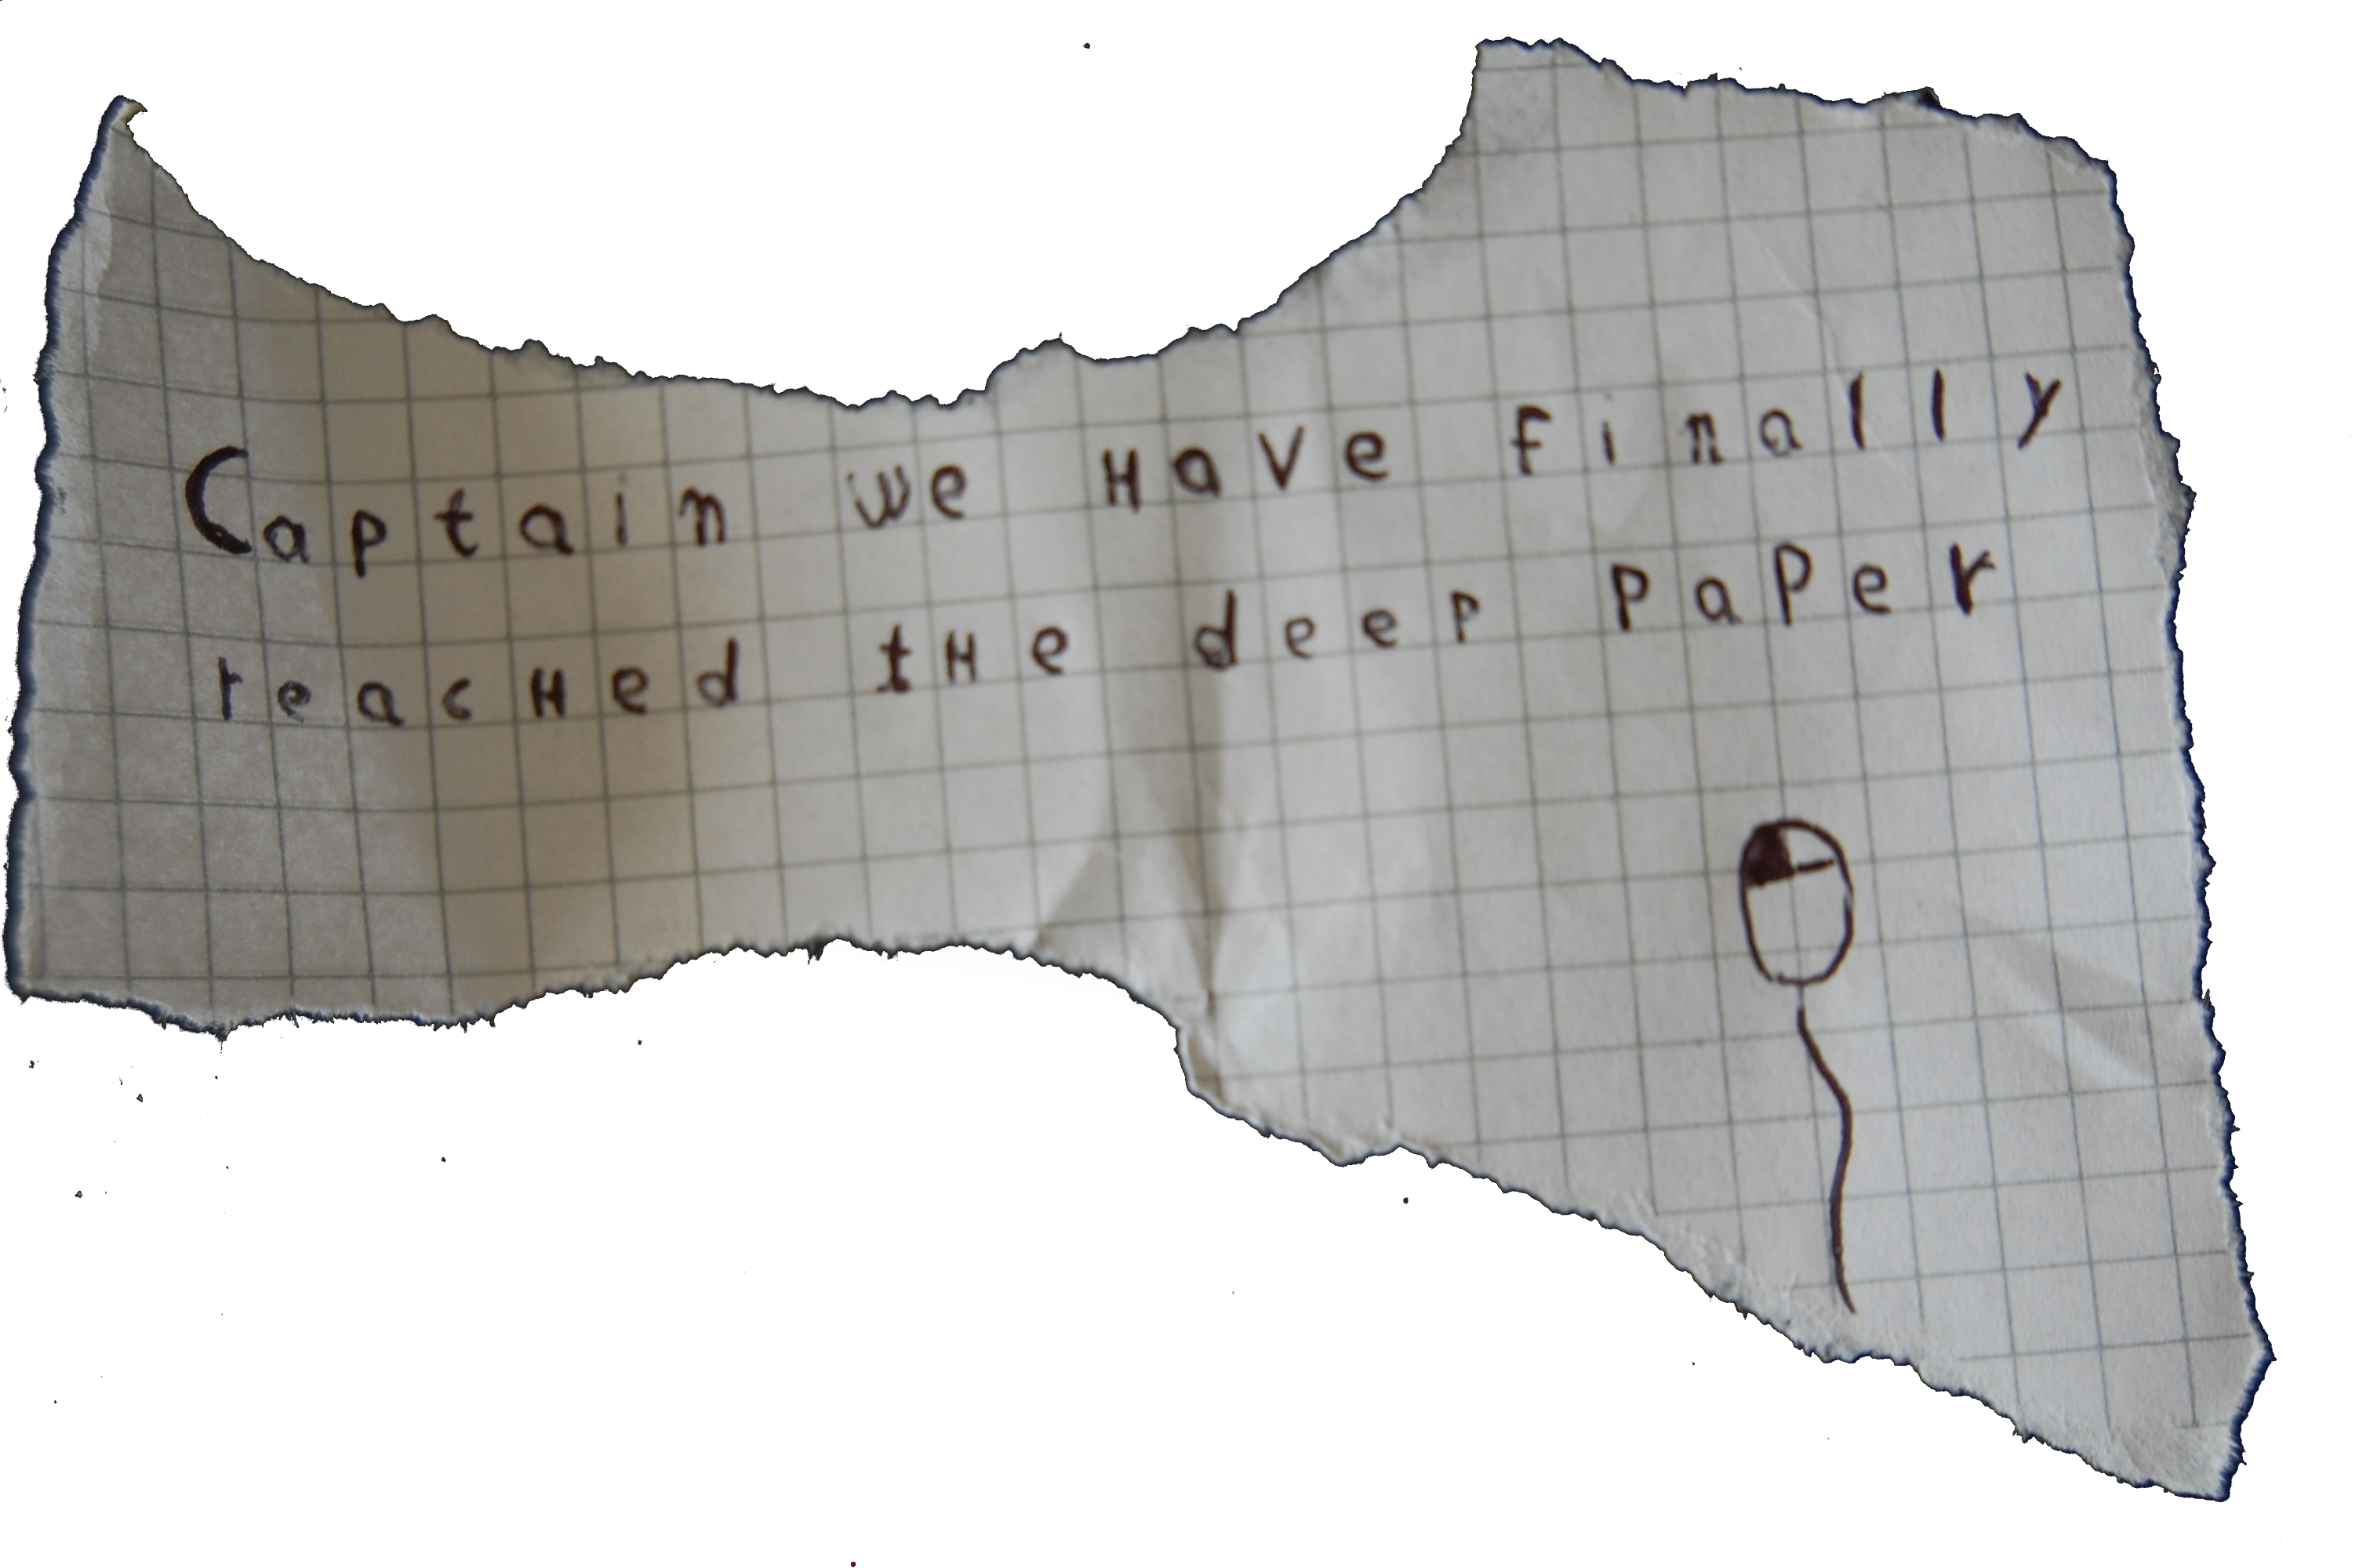 Captain we Have finally
reacHed tHe deep PaPer